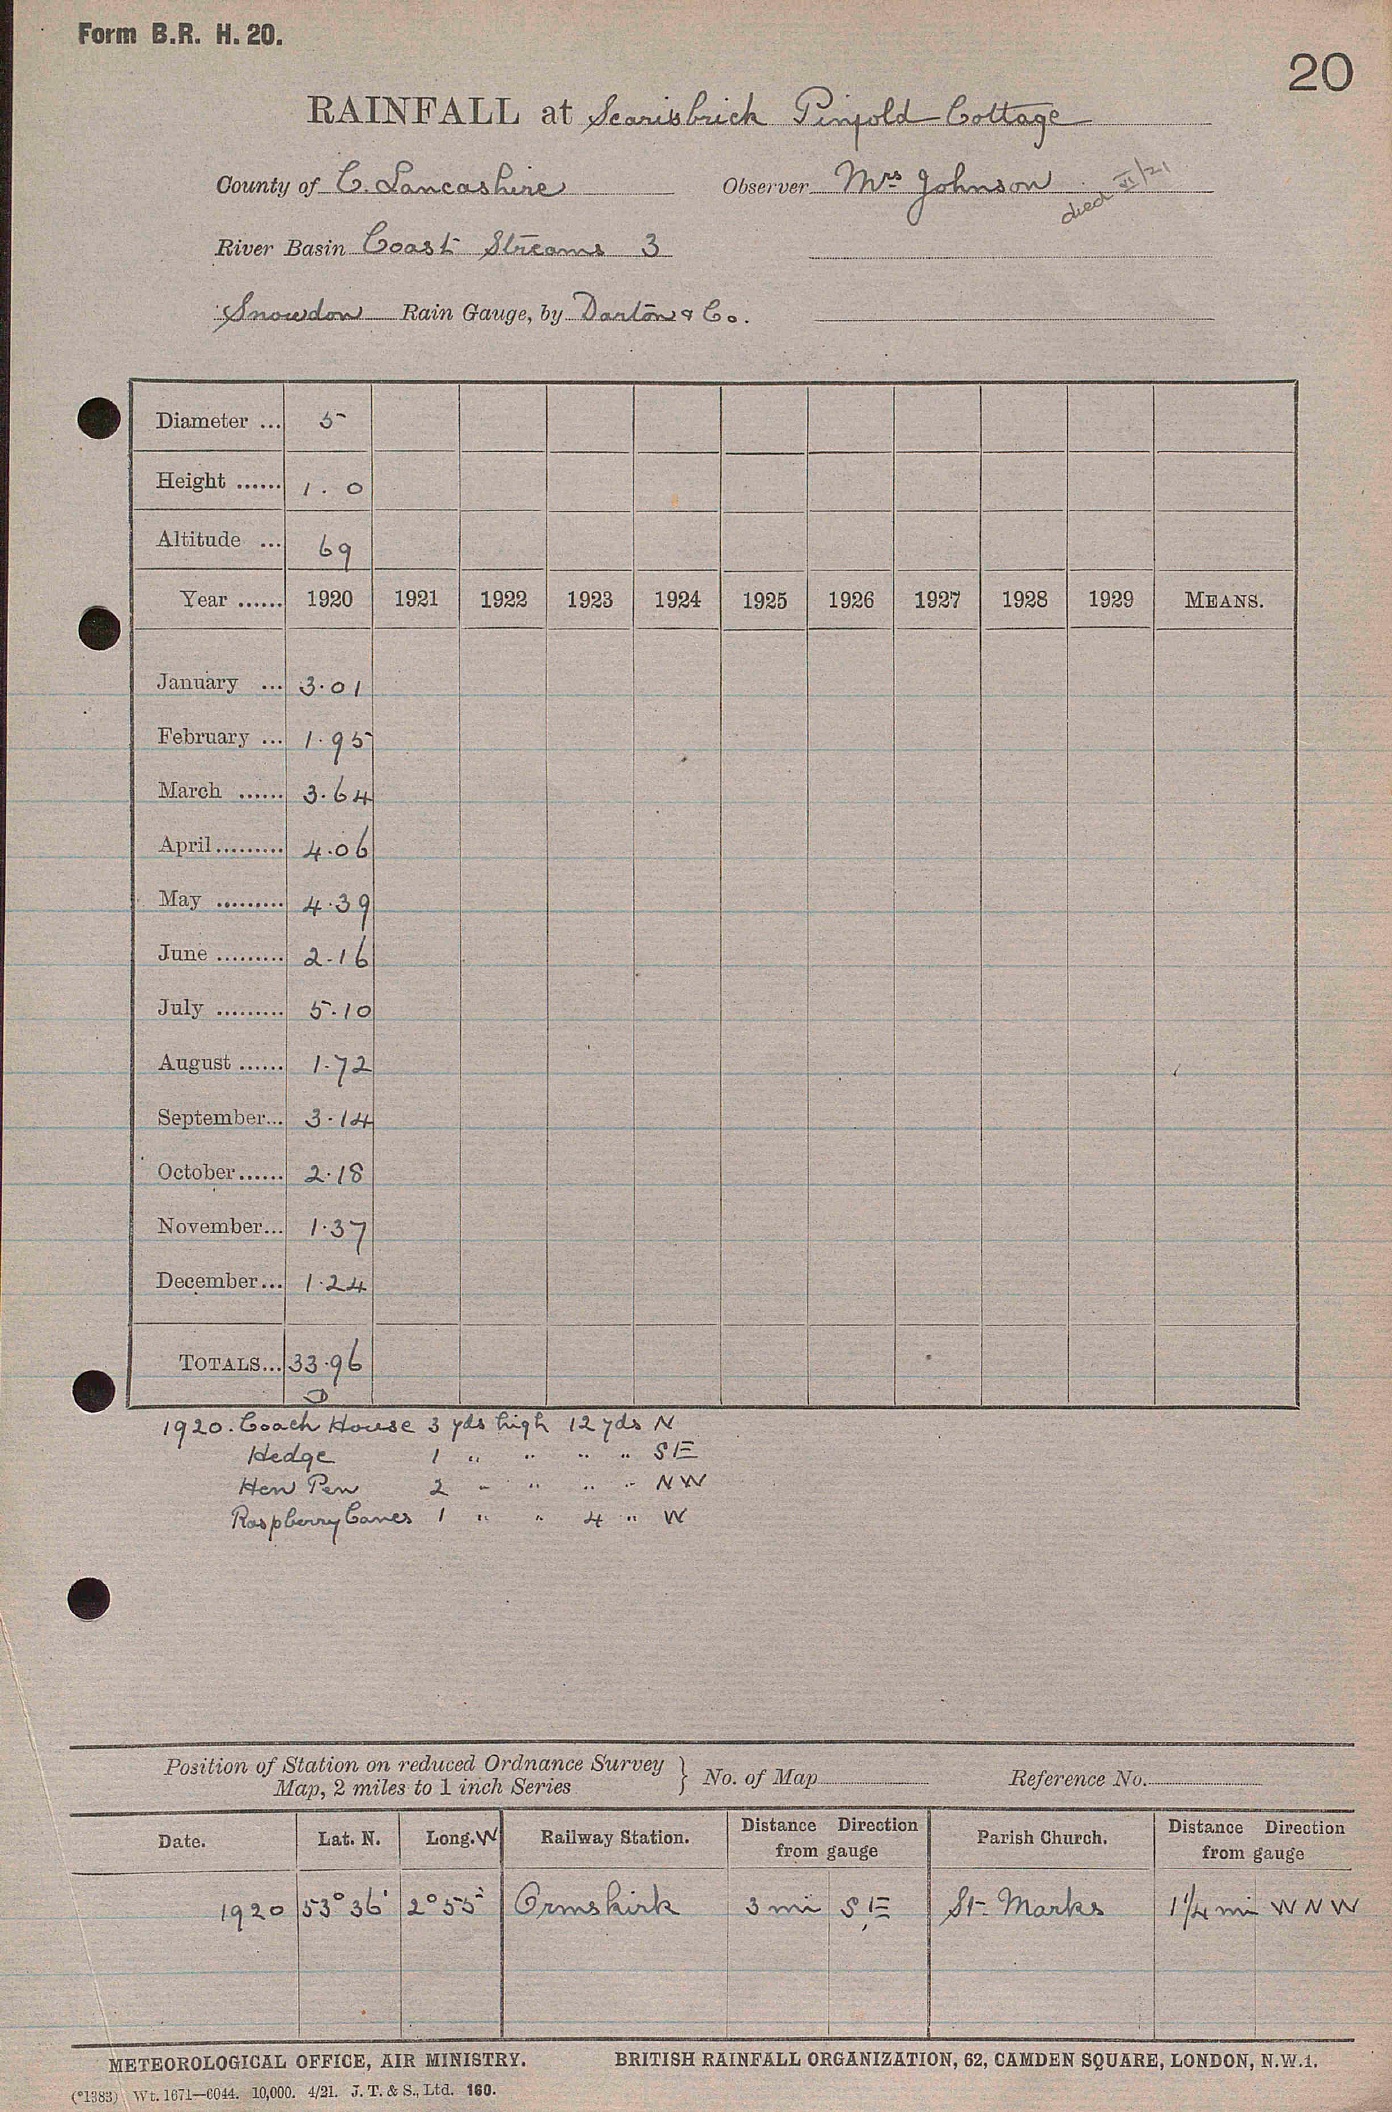 Form B.R. H. 20.
20
RAINFALL at Scarisbrick Pinfold Cottage
County of C. Lancashire Observer Mrs Johnson died VI/21
River Basin Coast Streams 3
Snowdon Rain Gauge, by Darton & Co.
Diameter ... 5
Height ...... 1. 0
Altitude ... 69
Year ...... 1920 1921 1922 1923 1924 1925 1926 1927 1928 1929 MEANS.
January ... 3.01
February ... 1.95
March ...... 3.64
April ......... 4.06
May ......... 4.39
June ......... 2.16
July ......... 5.10
August ...... 1.72
September... 3.14
October...... 2.18
November... 1.37
December... 1.24
TOTALS... 33.96
D
1920. Coach House 3 yds high 12 yds N
Hedge 1 " " " " SE
Hen Pen 2 " " " " NW
Raspberry Canes 1 " " 4 " W
Position of Station on reduced Ordnance Survey
Map, 2 miles to 1 inch Series } No. of Map Reference No.
Date. Lat. N. Long. W Railway Station. Distance Direction from gauge Parish Church. Distance Direction from gauge
1920 53° 36' 2° 55' Ormskirk 3 mi SE St. Marks 1¼ mi WNW
METEOROLOGICAL OFFICE, AIR MINISTRY. BRITISH RAINFALL ORGANIZATION, 62, CAMDEN SQUARE, LONDON, N.W.1.
(*1383) Wt. 1671—6044. 10,000. 4/21. J. T. & S., Ltd. 160.